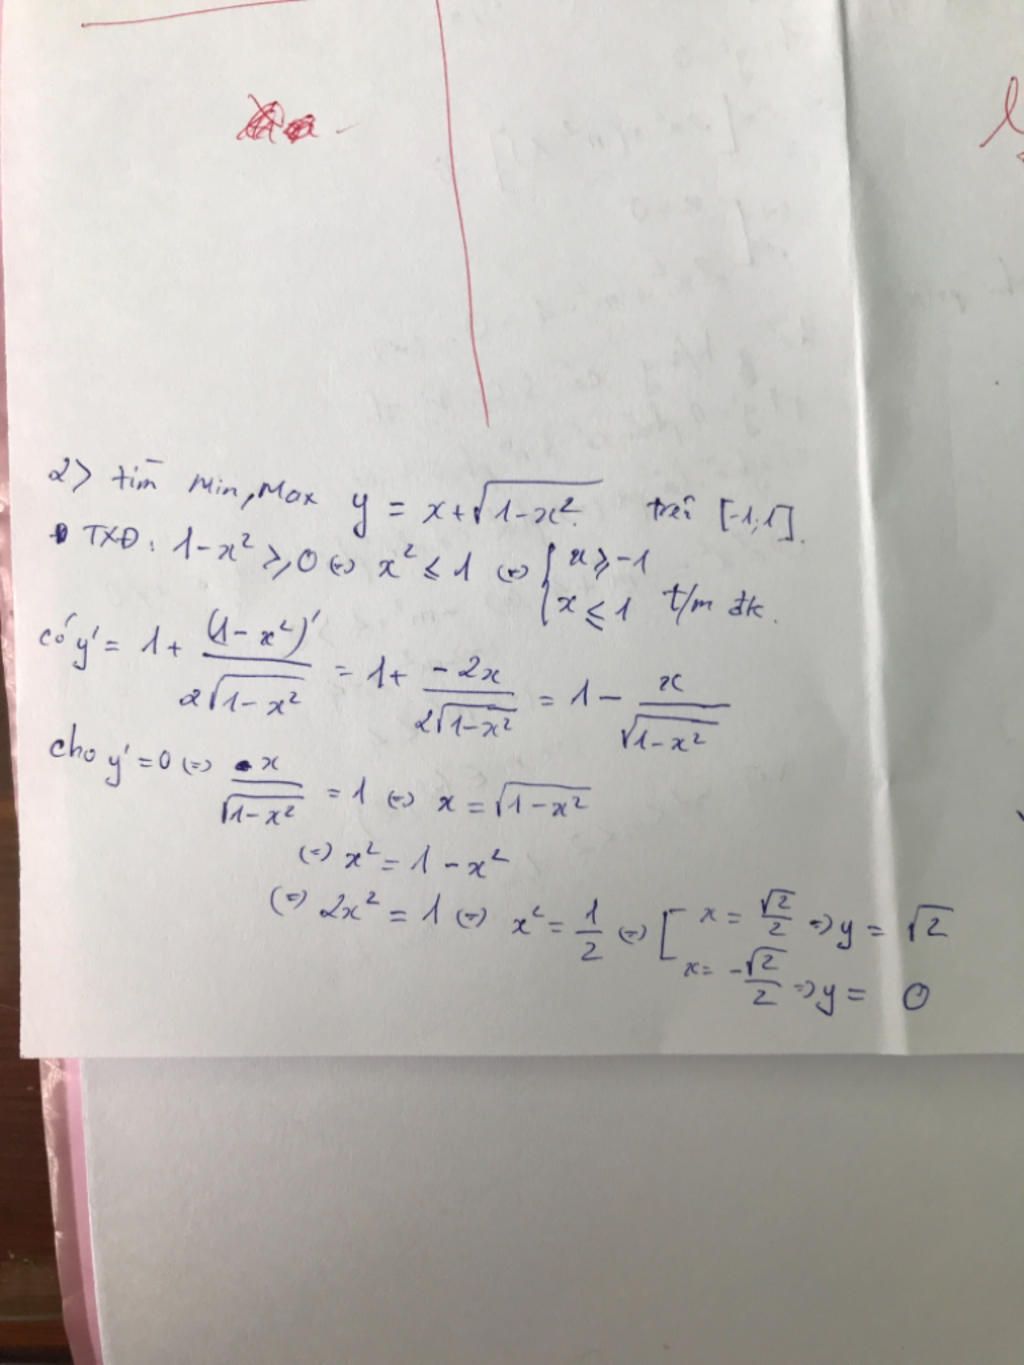 2> tìm Min, Max y = x + √(1-x²) trên [-1;1].
TXĐ: 1-x² ≥ 0 (=) x² ≤ 1 (=) { x ≥ -1
x ≤ 1 t/m đk.
có y' = 1 + (1-x²)'/(2√(1-x²)) = 1 + (-2x)/(2√(1-x²)) = 1 - x/√(1-x²)
cho y' = 0 (=) x/√(1-x²) = 1 (=) x = √(1-x²)
(=) x² = 1 - x²
(=) 2x² = 1 (=) x² = 1/2 (=) [ x = √2/2 => y = √2
x = -√2/2 => y = 0